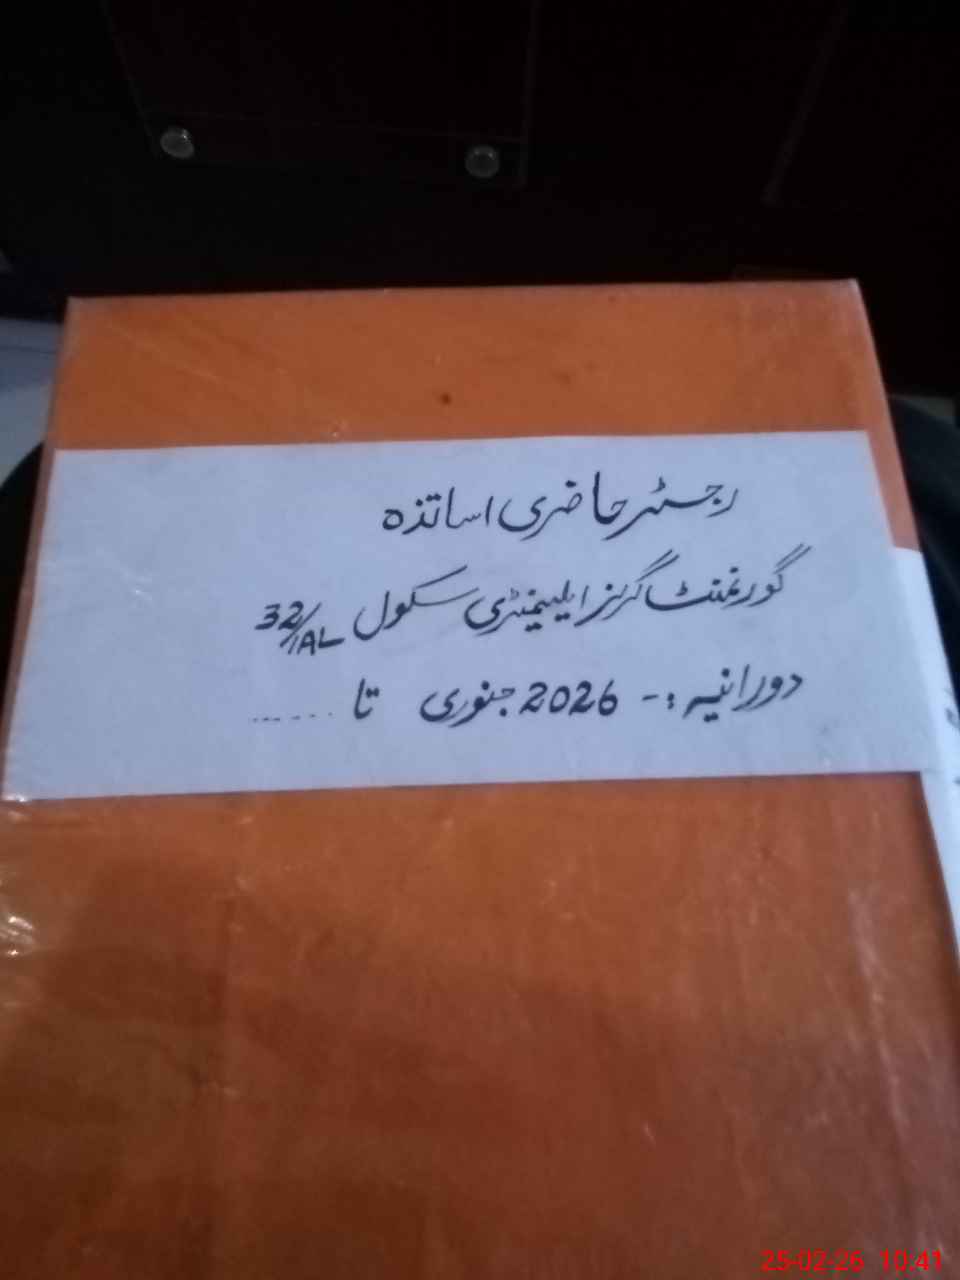 رجسٹر حاضری اساتذہ
گورنمنٹ گرلز ایلیمنٹری سکول 32/1AL
دورانیہ :- 2026 جنوری تا ......
25-02-26 10:41